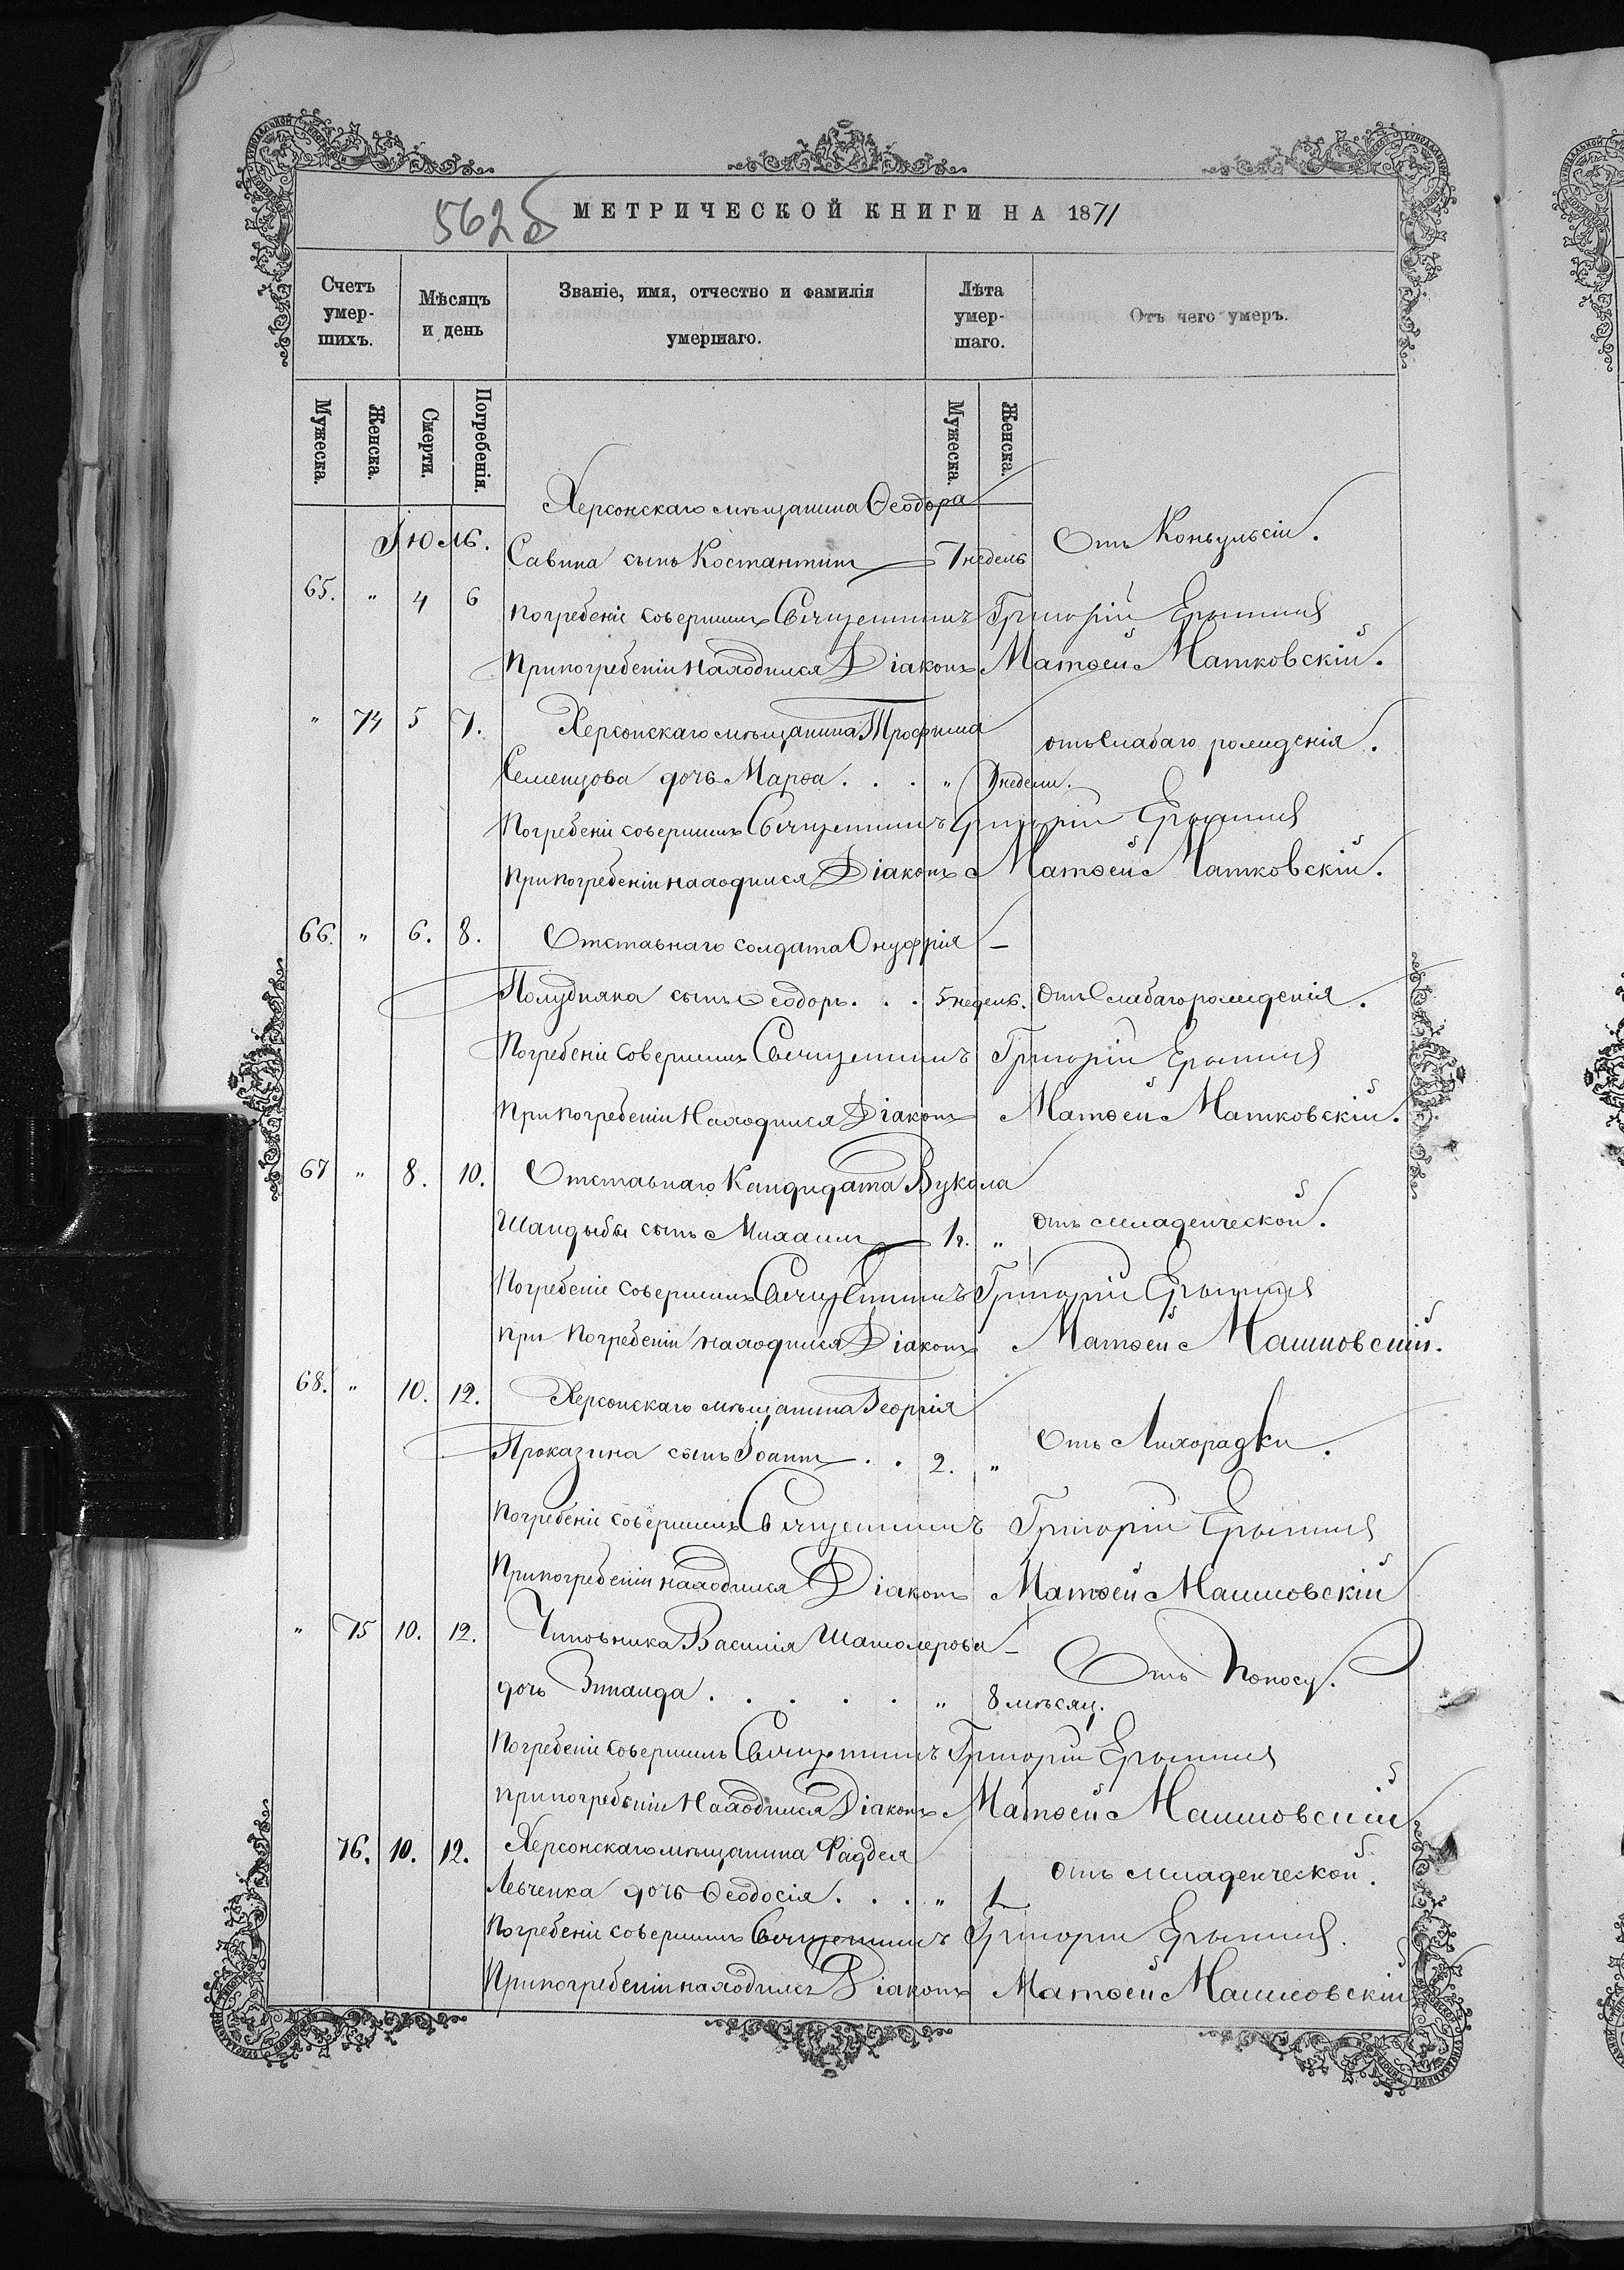 562 б
МЕТРИЧЕСКОЙ КНИГИ НА 1871
Счетъ умер-шихъ.
Мѣсяцъ и день
Званіе, имя, отчество и фамилія умершаго.
Лѣта умер-шаго.
Отъ чего умеръ.
Мужеска. Женска. Смерти. Погребенія. Мужеска. Женска.
Херсонскаго мѣщанина Ѳеодора
Іюль. Савина сынъ Костантинъ 7 недель Отъ Коньульсіи.
65. " 4 6 Погребеніе совершилъ Священникъ Григорій
При погребеніи находился Діаконъ Матѳей Матковскій.
" 74 5 7. Херсонскаго мѣщанина Трофима
отъ Слабаго рожденія.
Семенцова дочь Марѳа . . . " недели.
Погребеніе совершилъ Священникъ Григорій
При погребеніи находился Діаконъ Матѳей Матковскій.
66. " 6. 8. Отставнаго солдата Онуфрія
Полудняка сынъ Ѳеодоръ . . . 5 недель. Отъ Слабаго рожденія.
Погребеніе совершилъ Священникъ Григорій
При погребеніи Находился Діаконъ Матѳей Матковскій.
67 " 8. 10. Отставнаго Кандидата Вукола
Шандыбы сынъ Михаилъ 1 г. " отъ младенческой.
Погребеніе совершилъ Священникъ Григорій
При Погребеніи находился Діаконъ Матѳей Матковскій.
68. " 10. 12. Херсонскаго мѣщанина Георгія
Проказина сынъ Іоаннъ . . 2. " Отъ Лихорадки.
Погребеніе совершилъ Священникъ Григорій
При погребеніи находился Діаконъ Матѳей Матковскій
" 75 10. 12. Чиновника Василія
дочь Зинаида . . . . . " 8 мѣсяц. Отъ Поносу.
Погребеніе совершилъ Священникъ Григорій
При погребеніи Находился Діаконъ Матѳей Матковскій
76. 10. 12. Херсонскаго мѣщанина Фаддея
Левченка дочь Ѳеодосія . . . " 1 отъ младенческой.
Погребеніе совершилъ Священникъ Григорій
При погребеніи находился Діаконъ Матѳей Матковскій